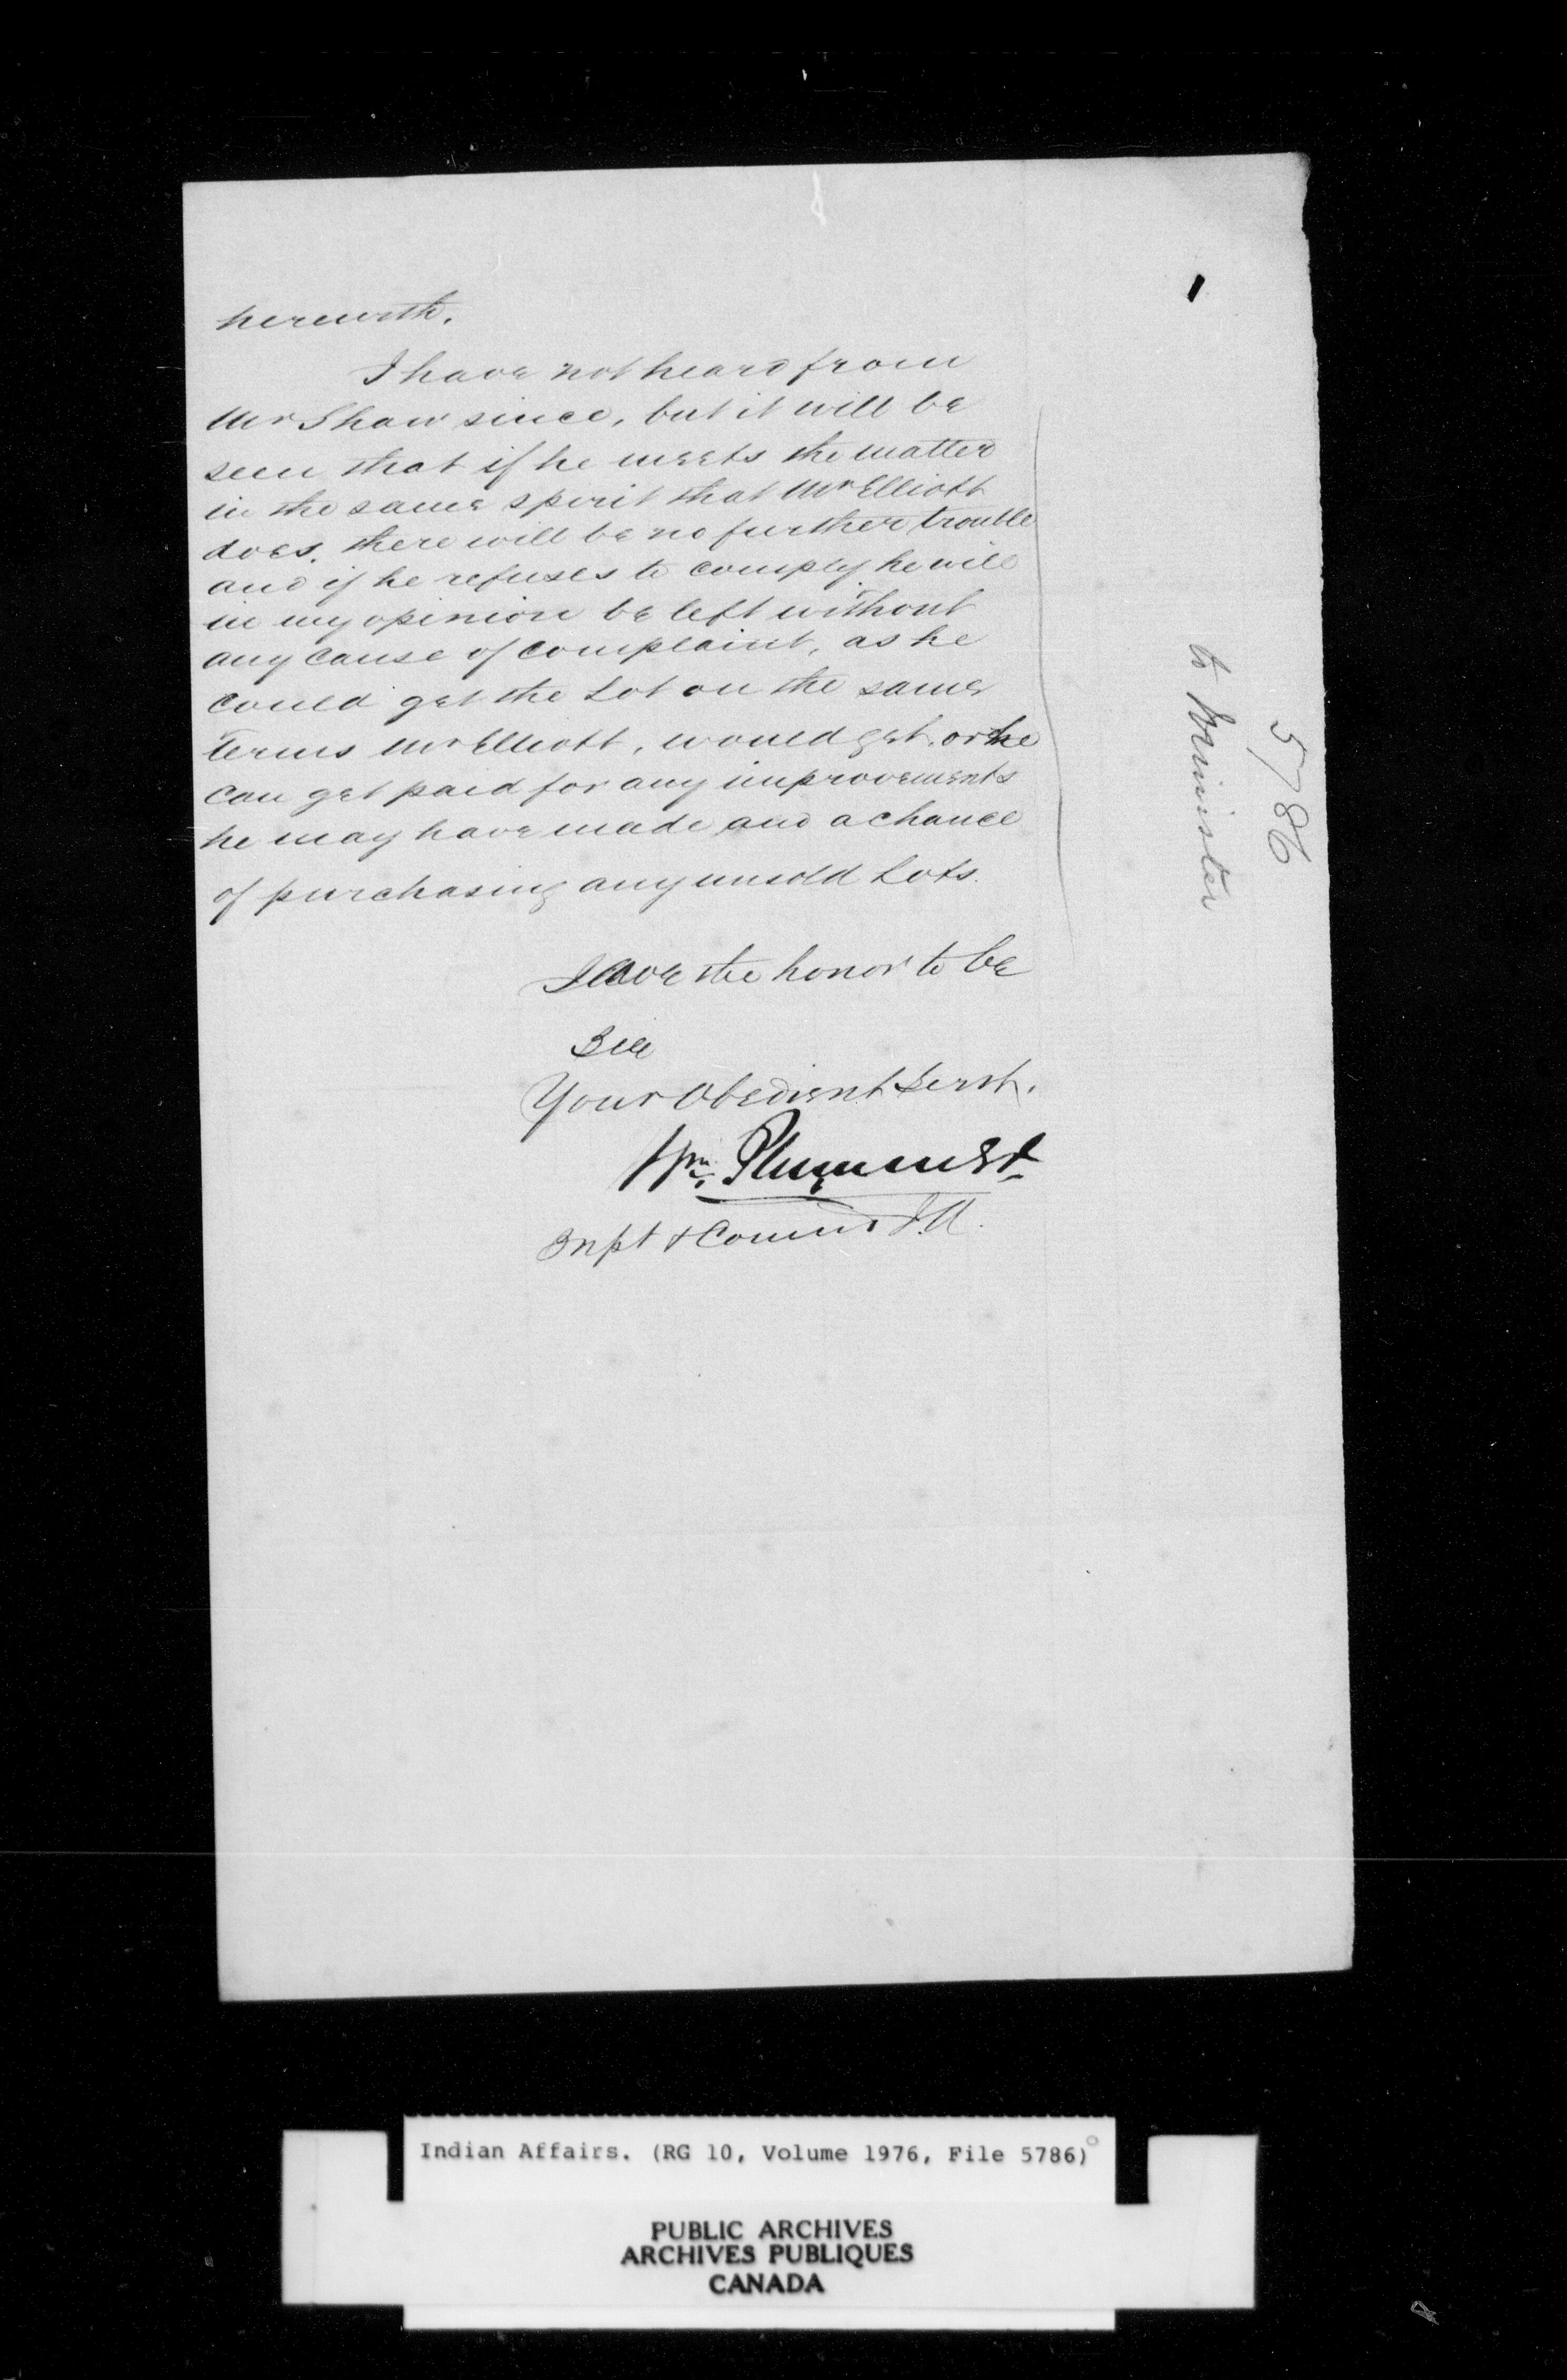 herewith.
I have not heard from
Mr Shaw since, but it will be
seen that if he meets the matter
in the same spirit that Mr Elliott
does, there will be no further trouble
and if he refuses to comply he will
in my opinion be left without
any cause of complaint, as he
could get the Lot on the same
terms Mr Elliott, would get, or he
can get paid for any improvements
he may have made and a chance
of purchasing any unsold Lots.
I have the honor to be
Sir
Your Obedient Servt.
Wm. Plummer
Supt & Commr I.A.
5786
to Minister
Indian Affairs. (RG 10, Volume 1976, File 5786)
PUBLIC ARCHIVES
ARCHIVES PUBLIQUES
CANADA